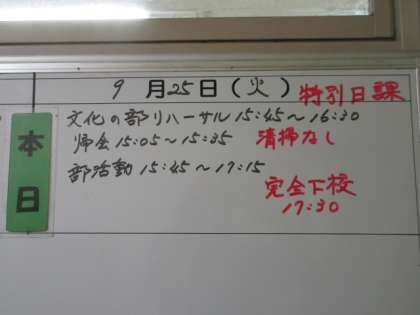 9月25日(火) 特別日課
本日
文化の部リハーサル 15:45～16:30
帰会 15:05～15:35 清掃なし
部活動 15:45～17:15
完全下校
17:30